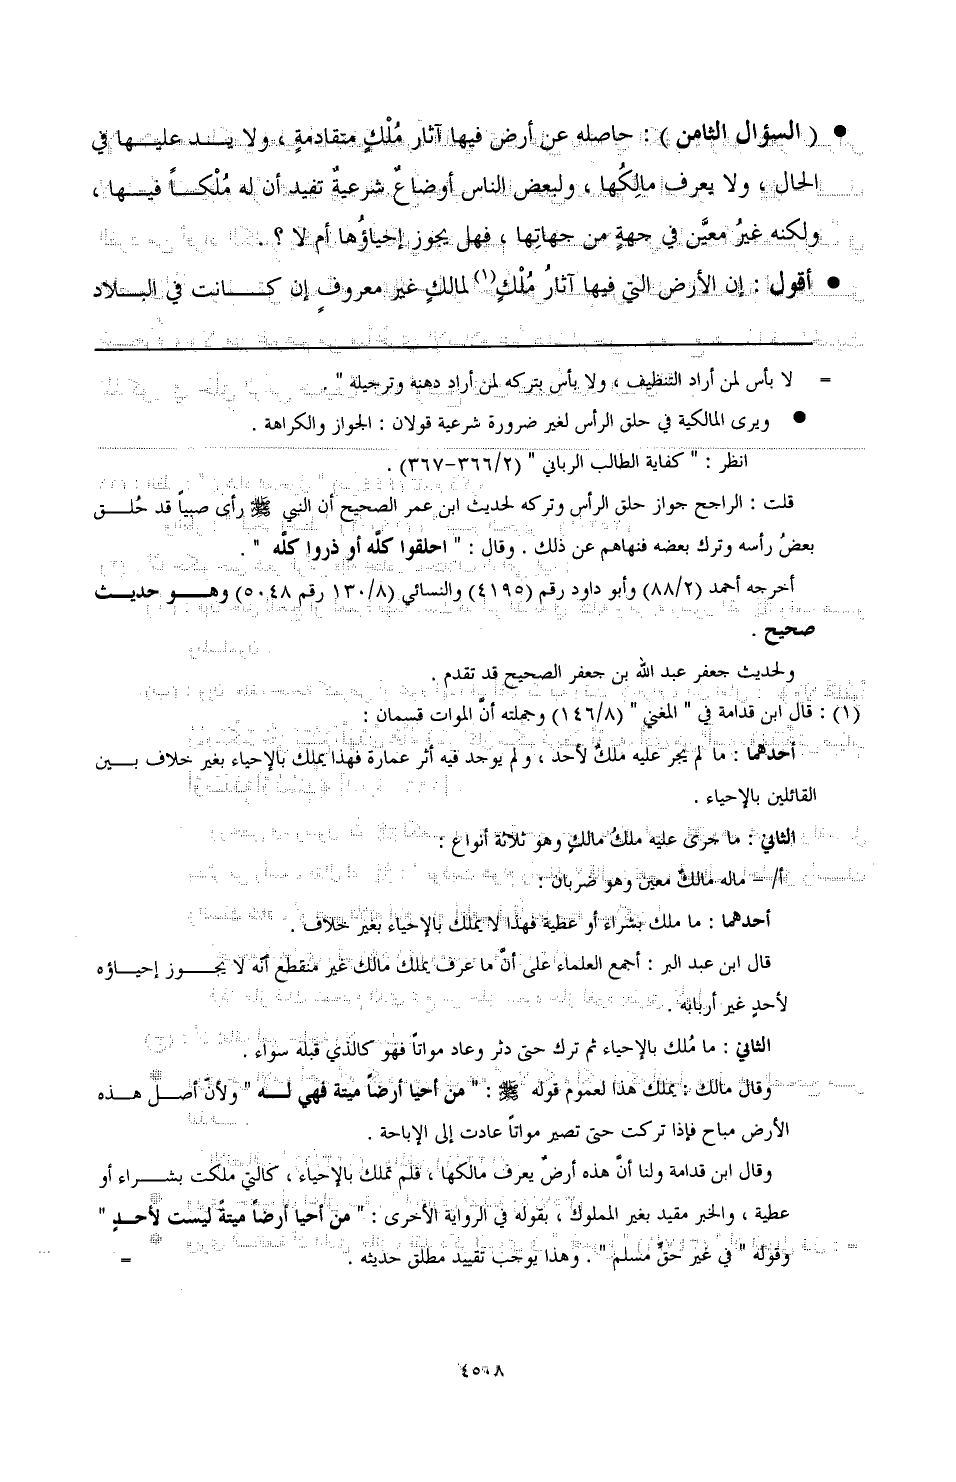 ● ( السؤال الثامن ) : حاصله عن أرض فيها آثار مُلْكٍ متقادمةٍ ، ولا يــد عليـها في
الحال ، ولا يعرف مالِكُها ، ولبعض الناس أوضاعٌ شرعيةٌ تفيد أن له مُلْكـاً فيـها ،
ولكنه غيرُ معيَّن في جهةٍ من جهاتِها ، فهل يجوز إحياؤُها أم لا ؟ .
● أقول : إن الأرض التي فيها آثارُ مُلْكٍ(١) لمالكٍ غير معروفٍ إن كـانت في البـلاد
= لا بأس لمن أراد التنظيف ، ولا بأس بتركه لمن أراد دهنه وترجيله " .
● ويرى المالكية في حلق الرأس لغير ضرورة شرعية قولان : الجواز والكراهة .
انظر : " كفاية الطالب الرباني " (٢/٣٦٦-٣٦٧) .
قلت : الراجح جواز حلق الرأس وتركه لحديث ابن عمر الصحيح أن النبي ﷺ رأى صبياً قد حُلـق
بعضُ رأسه وترك بعضه فنهاهم عن ذلك . وقال : " احلقوا كلَّه أو ذروا كلَّه " .
أخرجه أحمد (٢/٨٨) وأبو داود رقم (٤١٩٥) والنسائي (٨/١٣٠ رقم ٥٠٤٨) وهـو حديـث
صحيح .
ولحديث جعفر عبد الله بن جعفر الصحيح قد تقدم .
(١) : قال ابن قدامة في " المغني " (٨/١٤٦) وجملته أنَّ الموات قسمان :
أحدهما : ما لم يجر عليه ملكٌ لأحد ، ولم يوجد فيه أثر عمارة فهذا يملك بالإحياء بغير خلاف بـين
القائلين بالإحياء .
الثاني : ما جرى عليه ملكُ مالكٍ وهو ثلاثة أنواع :
أ/ – ماله مالكٌ معين وهو ضربان :
أحدهما : ما ملك بشراء أو عطية فهذا لا يملك بالإحياء بغير خلاف .
قال ابن عبد البر : أجمع العلماء على أنَّ ما عرف يملك مالك غير منقطع أنّه لا يجـوز إحيـاؤه
لأحدٍ غير أربابه .
الثاني : ما مُلك بالإحياء ثم ترك حتى دثر وعاد مواتاً فهو كالذي قبله سواء .
وقال مالك : يملك هذا لعموم قوله ﷺ : " من أحيا أرضاً ميتة فهي لـه " ولأنَّ أصـلَ هـذه
الأرض مباح فإذا تركت حتى تصير مواتاً عادت إلى الإباحة .
وقال ابن قدامة ولنا أنَّ هذه أرضٌ يعرف مالكها ، فلم تملك بالإحياء ، كالتي ملكت بشـراء أو
عطية ، والخبر مقيد بغير المملوك ، بقوله في الرواية الأخرى : " من أحيا أرضاً ميتةً ليست لأحـدٍ "
وقوله " في غير حقِّ مسلم " . وهذا يوجب تقييد مطلق حديثه . =